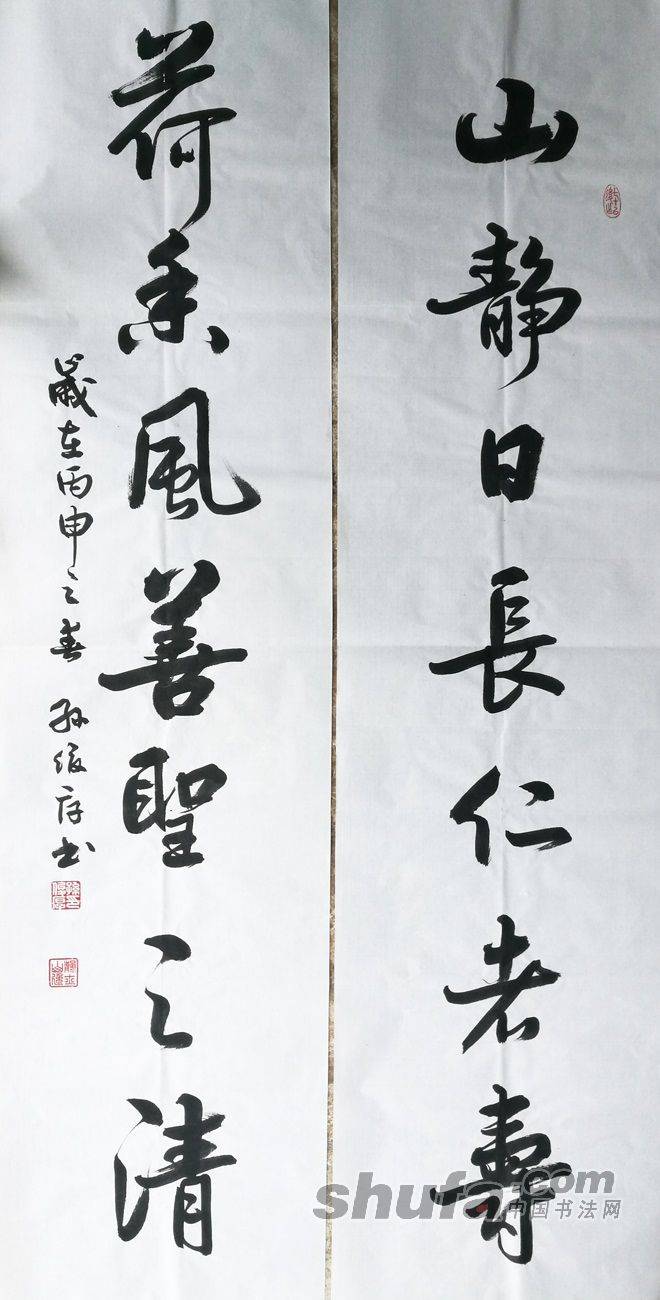 山静日長仁者壽
荷香風善聖之清
歲在丙申之春 孫俊 书
shufa.com
中国书法网